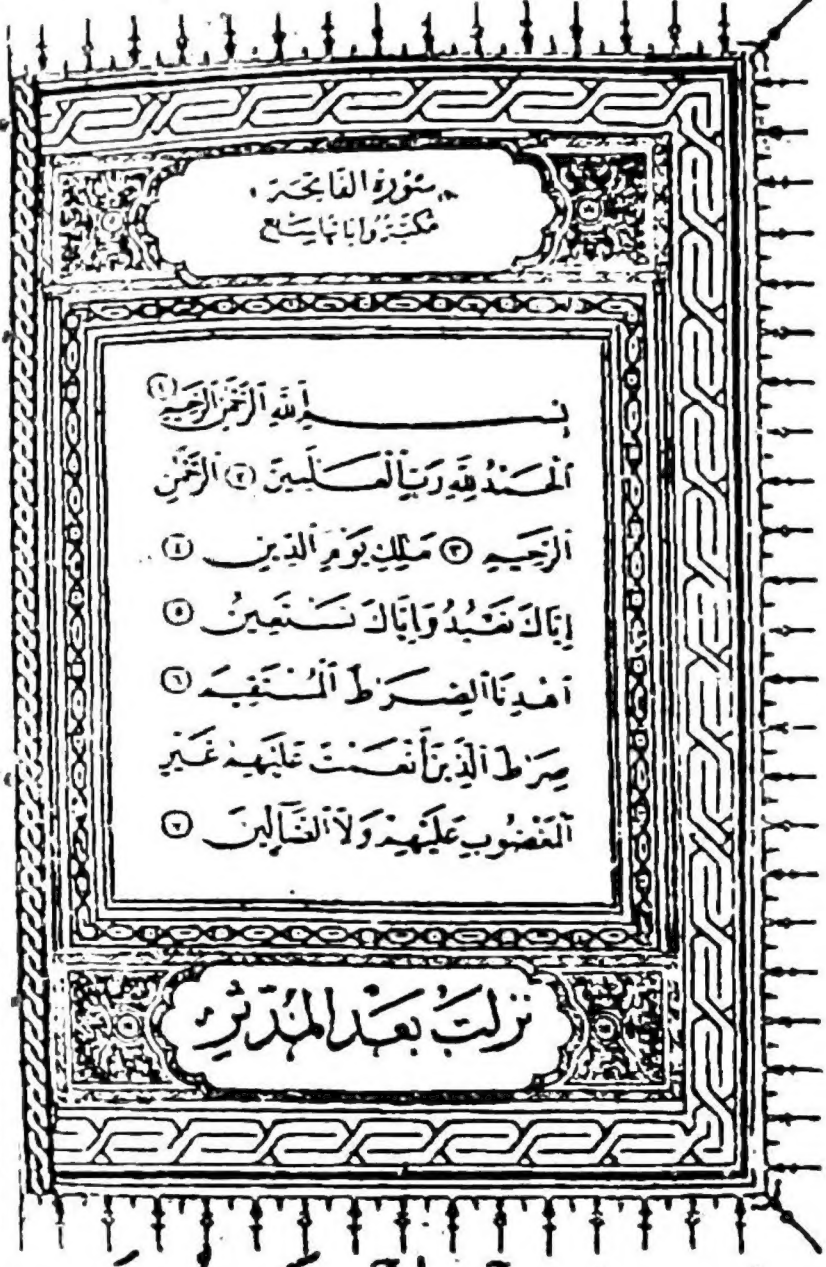 سُورَةُ الفَاتِحَة
مَكِّيَّةٌ وَآيَاتُهَا سَبْعٌ
بِسْمِ ٱللَّهِ ٱلرَّحْمَٰنِ ٱلرَّحِيمِ ١
ٱلْحَمْدُ لِلَّهِ رَبِّ ٱلْعَٰلَمِينَ ٢ ٱلرَّحْمَٰنِ
ٱلرَّحِيمِ ٣ مَٰلِكِ يَوْمِ ٱلدِّينِ ٤
إِيَّاكَ نَعْبُدُ وَإِيَّاكَ نَسْتَعِينُ ٥
ٱهْدِنَا ٱلصِّرَٰطَ ٱلْمُسْتَقِيمَ ٦
صِرَٰطَ ٱلَّذِينَ أَنْعَمْتَ عَلَيْهِمْ غَيْرِ
ٱلْمَغْضُوبِ عَلَيْهِمْ وَلَا ٱلضَّآلِّينَ ٧
نَزَلَتْ بَعْدَ المُدَّثِّرِ